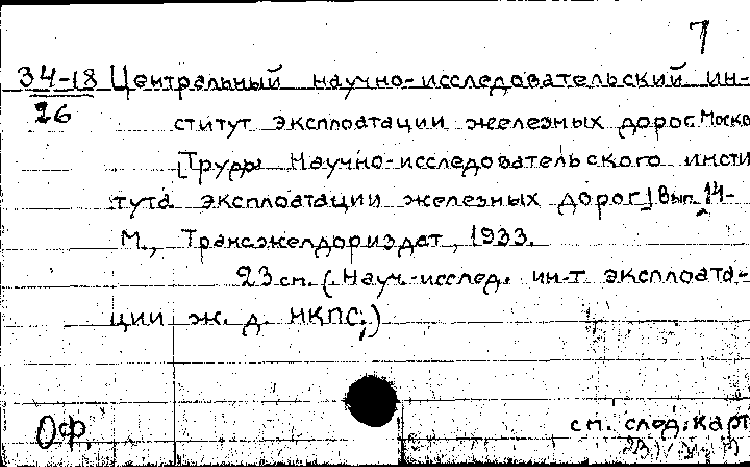 7
34-18 Центральный научно-исследовательский ин-
26
ститут эксплоатации железных дорог. Моско
[Труды Научно-исследовательского инсти
тута эксплоатации железных дорог] Вып. 14-
М., Трансжелдориздат, 1933.
23 см. (Науч.-исслед. ин-т эксплоата-
ции ж. д. НКПС;)
Оф.
см. след. карт